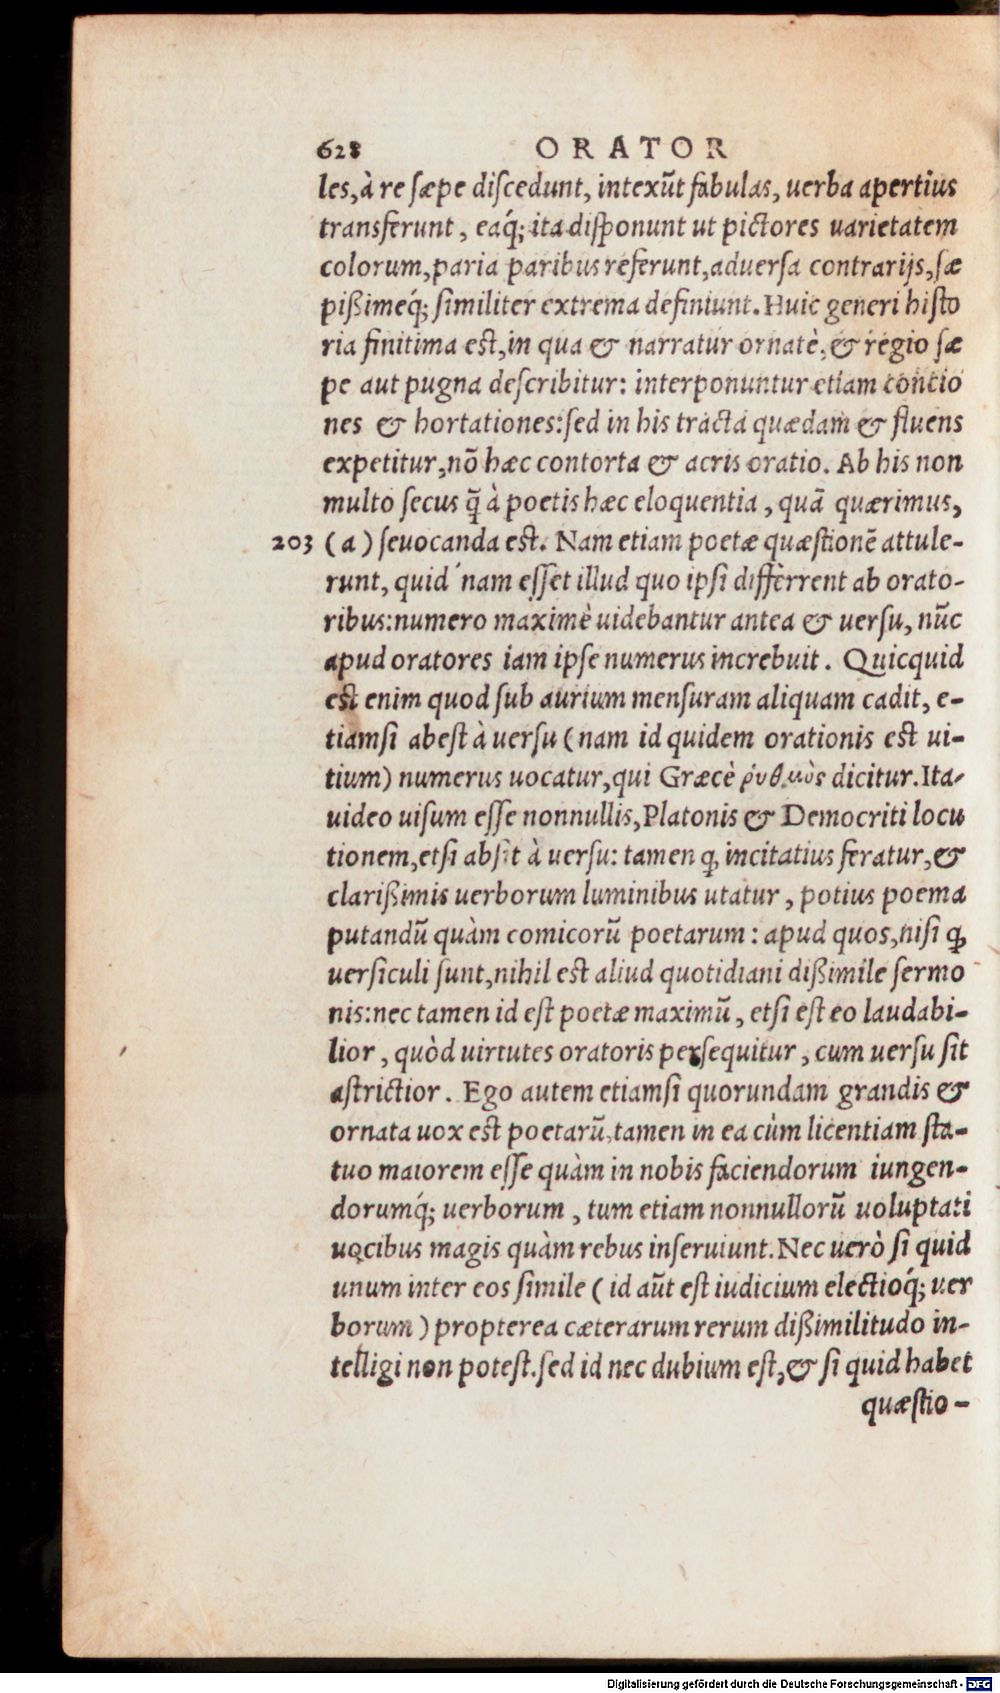 628 ORATOR
les, à re sæpe discedunt, intexũt fabulas, uerba apertius
transferunt, eaq́; ita disponunt ut pictores uarietatem
colorum, paria paribus referunt, aduersa contrarijs, sæ
pißimeq́; similiter extrema definiunt. Huic generi histo
ria finitima est, in qua & narratur ornatè, & regio sæ
pe aut pugna describitur: interponuntur etiam concio
nes & hortationes: sed in his tracta quædam & fluens
expetitur, nõ hæc contorta & acris oratio. Ab his non
multo secus q̃ à poetis hæc eloquentia, quã quærimus,
203 (a) seuocanda est. Nam etiam poetæ quæstionẽ attule-
runt, quid nam esset illud quo ipsi differrent ab orato-
ribus: numero maximè uidebantur antea & uersu, nũc
apud oratores iam ipse numerus increbuit. Quicquid
est enim quod sub aurium mensuram aliquam cadit, e-
tiamsi abest à uersu (nam id quidem orationis est ui-
tium) numerus uocatur, qui Græcè ῥυθμὸς dicitur. Ita-
uideo uisum esse nonnullis, Platonis & Democriti locu
tionem, etsi absit à uersu: tamen ꝙ incitatius feratur, &
clarißimis uerborum luminibus utatur, potius poema
putandũ quàm comicorũ poetarum: apud quos, nisi ꝙ
uersiculi sunt, nihil est aliud quotidiani dißimile sermo
nis: nec tamen id est poetæ maximũ, etsi est eo laudabi-
lior, quòd uirtutes oratoris persequitur, cum uersu sit
astrictior. Ego autem etiamsi quorundam grandis &
ornata uox est poetarũ, tamen in ea cùm licentiam sta-
tuo maiorem esse quàm in nobis faciendorum iungen-
dorumq́; uerborum, tum etiam nonnullorũ uoluptati
uocibus magis quàm rebus inseruiunt. Nec uerò si quid
unum inter eos simile (id aũt est iudicium electioq́; uer
borum) propterea cæterarum rerum dißimilitudo in-
telligi non potest. sed id nec dubium est, & si quid habet
quæstio-
Digitalisierung gefördert durch die Deutsche Forschungsgemeinschaft - DFG